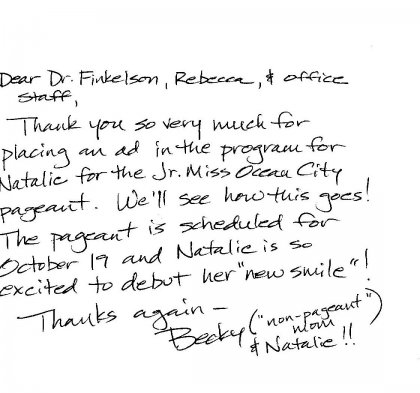 Dear Dr. Finkelson, Rebecca, & office
staff,
Thank you so very much for
placing an ad in the program for
Natalie for the Jr. Miss Ocean City
pageant. We'll see how this goes!
The pageant is scheduled for
October 19 and Natalie is so
excited to debut her "new smile"!
Thanks again –
Becky ("non-pageant"
mom)
& Natalie!!